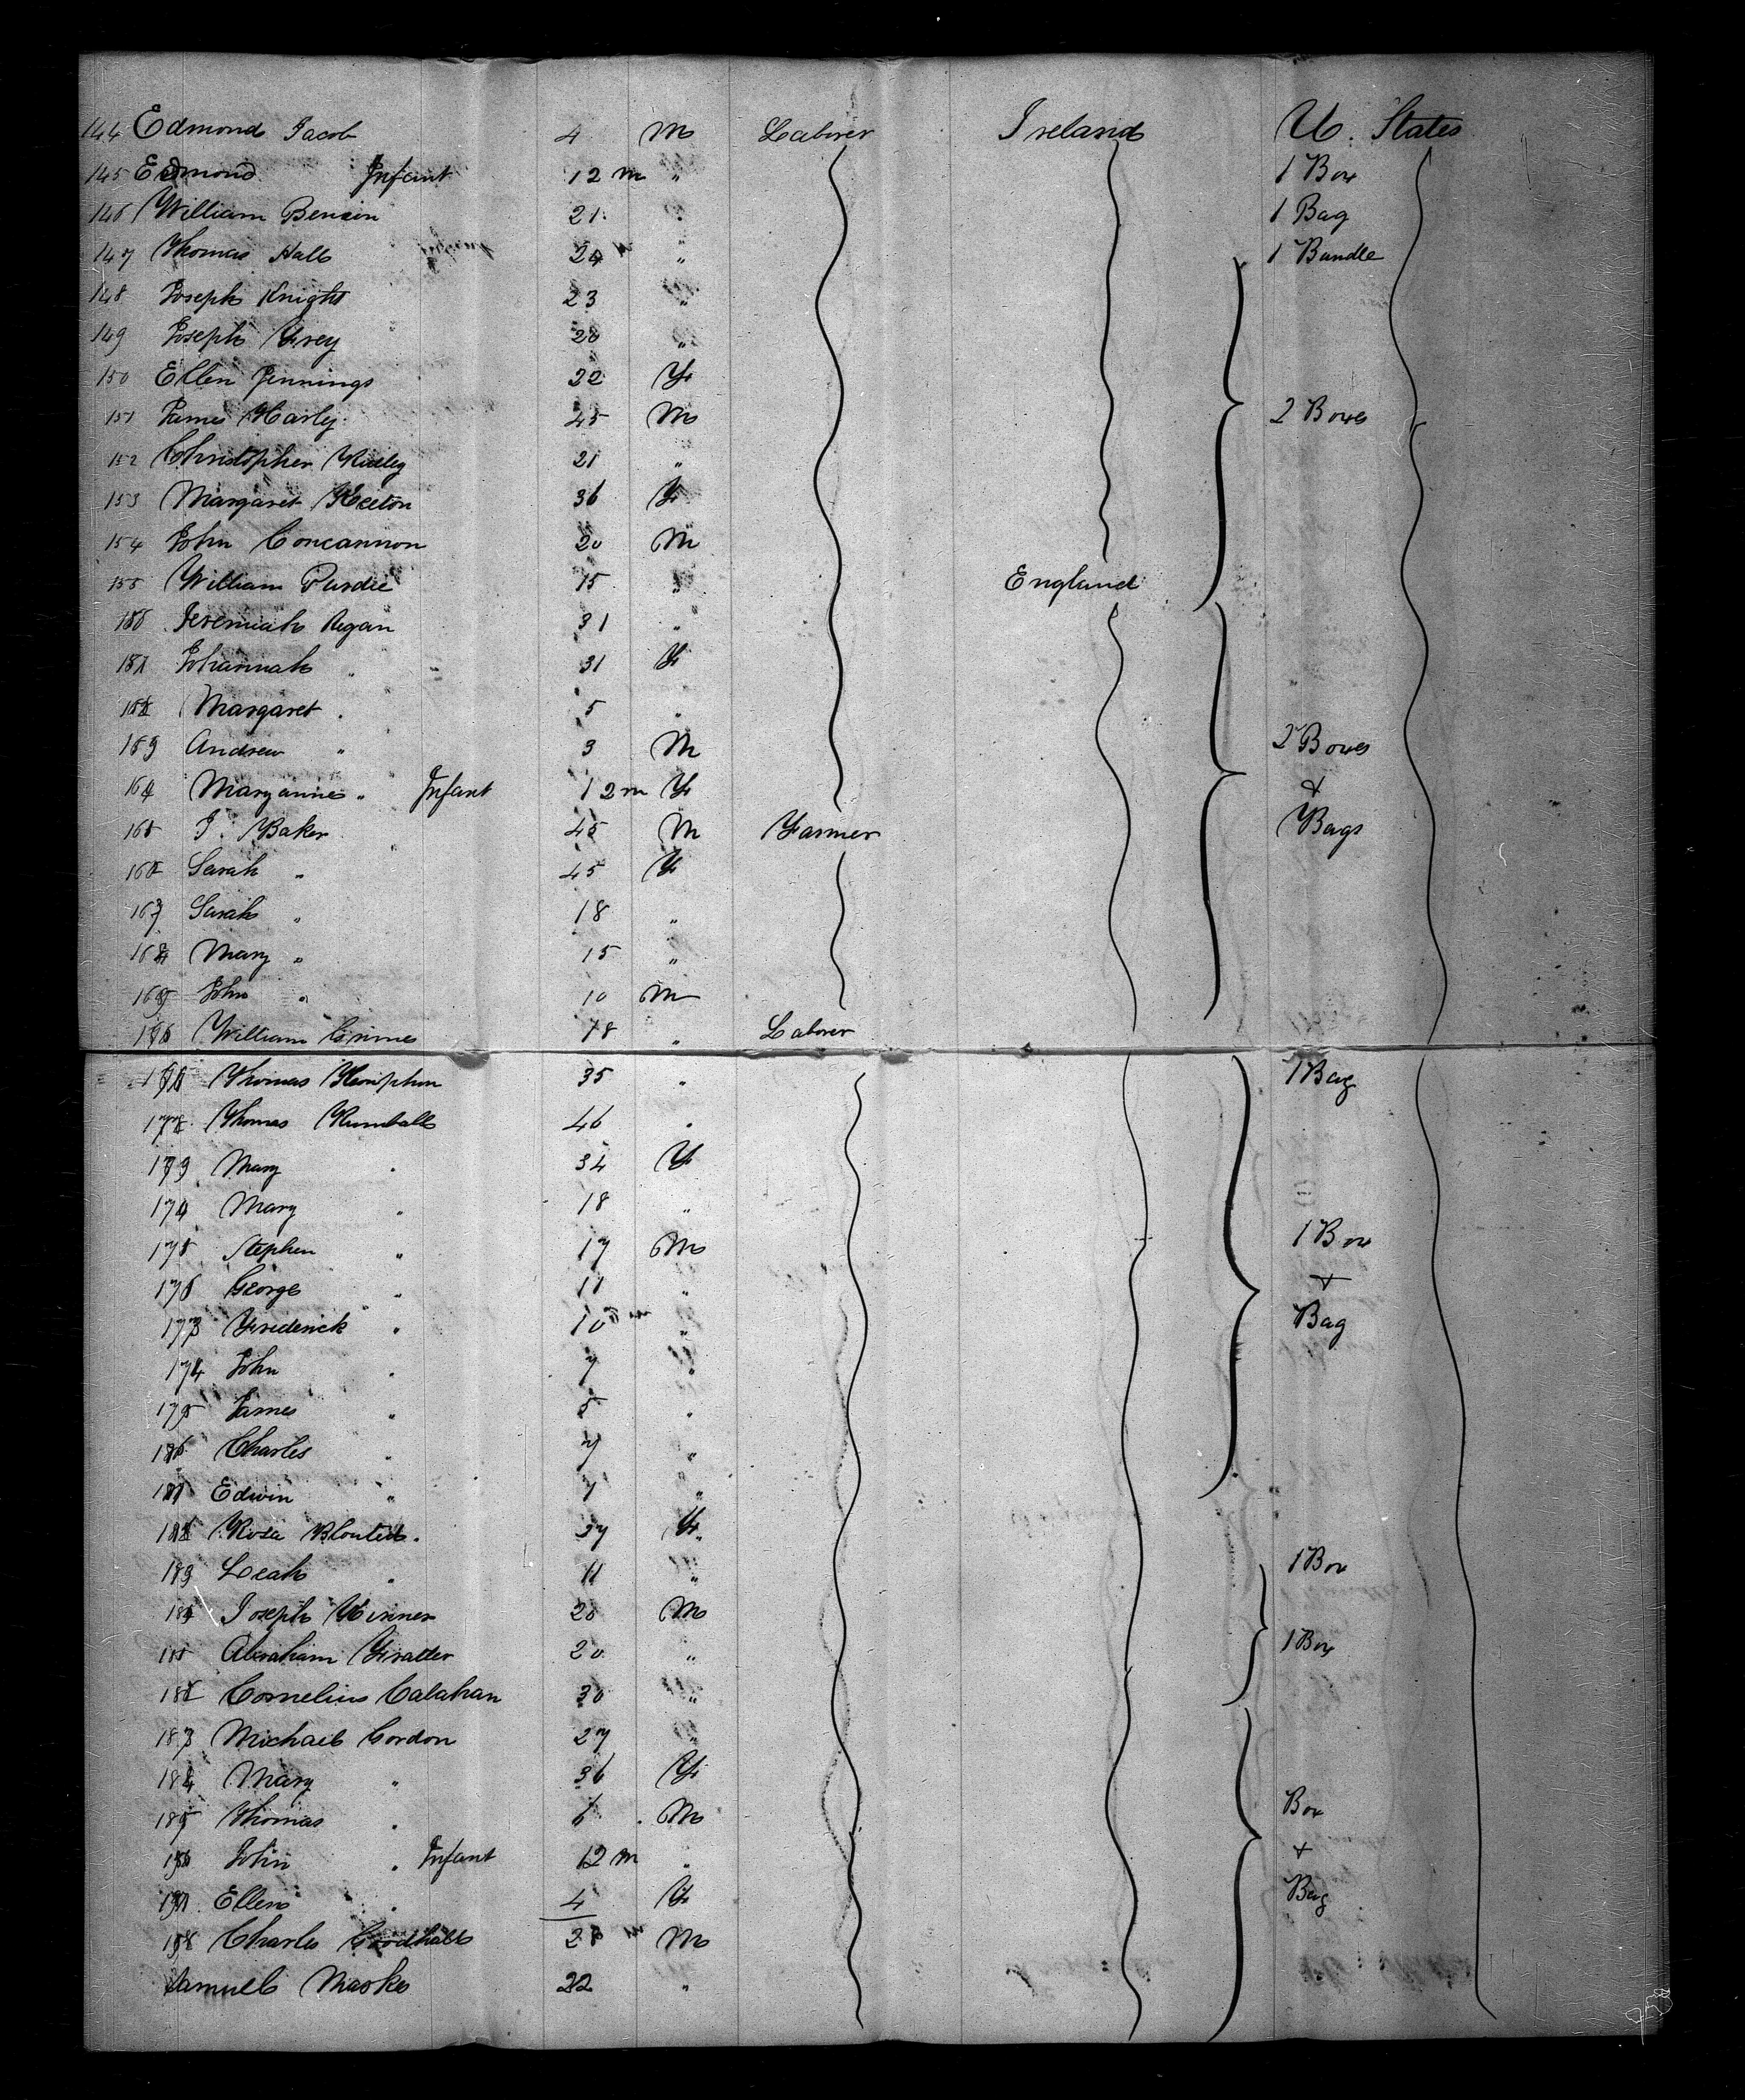 144 Edmond Jacob 4 M Laborer Ireland U. States
145 Edmond Infant 12 m " 1 Box
146 William Benson 21 " 1 Bag
147 Thomas Hall 24 " 1 Bundle
148 Joseph Knight 23 "
149 Joseph Frey 20 "
150 Ellen Jennings 22 F
151 James Harly 45 M 2 Boxes
152 Christopher 21 "
153 Margaret Keeton 36 F
154 John Concannon 20 M
155 William Purdie 15 " England
Jeremiah Regan 31 "
Johannah " 31 F
Margaret " 5 "
159 Andrew " 3 M 2 Boxes
164 Maryanne " Infant 12 m F &
165 J. Baker 45 M Farmer Bags
Sarah " 45 F
167 Sarah " 18 "
168 Mary " 15 "
169 John " 10 M
William Grimes 18 " Laborer
Thomas 35 " 1 Bag
Thomas Kumball 46 "
Mary " 34 F
174 Mary " 18 "
175 Stephen " 17 M 1 Box
176 George " 11 " &
173 Frederick " 10 " Bag
174 John " 7 "
175 James " 5 "
Charles " 7 "
Edwin " 7 "
Rosa 37 F
183 Leah " 11 " 1 Box
Joseph 20 M
Abraham 20 " 1 Box
Cornelius Calahan 30 "
183 Michael Cordon 27 "
184 Mary " 36 F
185 Thomas " 6 M Box
John " Infant 12 m " &
Ellen " 4 F Bag
198 Charles M
Samuel Marks 22 "